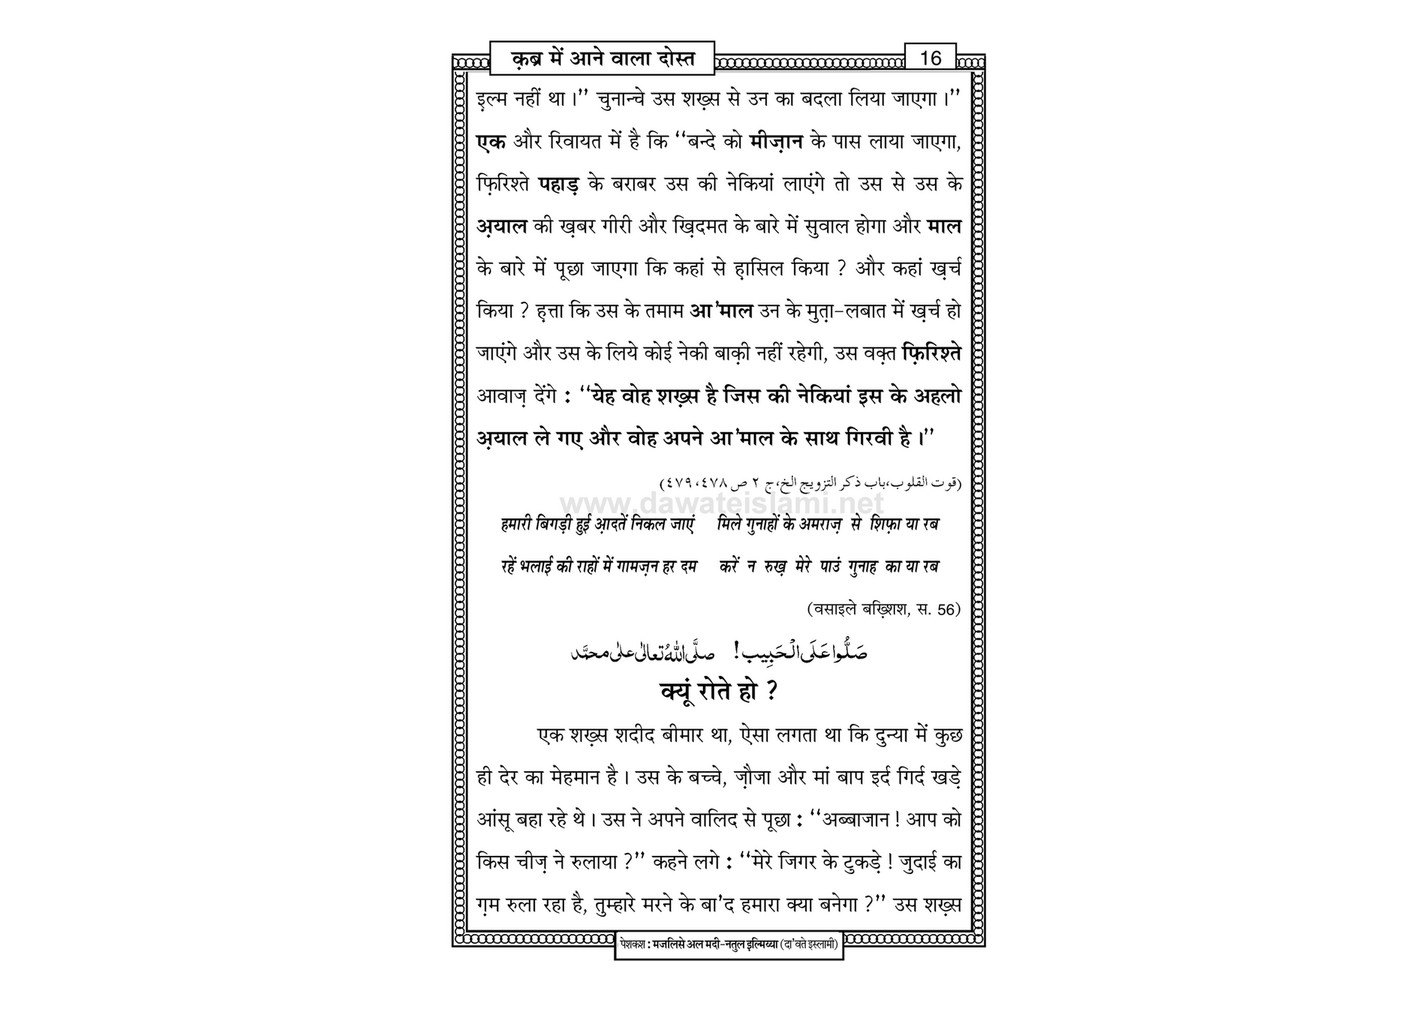 क़ब्र में आने वाला दोस्त
16
इ़ल्म नहीं था ।’’ चुनान्चे उस शख़्स से उन का बदला लिया जाएगा ।’’
एक और रिवायत में है कि ‘‘बन्दे को मीज़ान के पास लाया जाएगा,
फ़िरिश्ते पहाड़ के बराबर उस की नेकियां लाएंगे तो उस से उस के
अ़याल की ख़बर गीरी और ख़िदमत के बारे में सुवाल होगा और माल
के बारे में पूछा जाएगा कि कहां से ह़ासिल किया ? और कहां ख़र्च
किया ? ह़त्ता कि उस के तमाम आ’माल उन के मुत़ा-लबात में ख़र्च हो
जाएंगे और उस के लिये कोई नेकी बाक़ी नहीं रहेगी, उस वक़्त फ़िरिश्ते
आवाज़ देंगे : ‘‘येह वोह शख़्स है जिस की नेकियां इस के अहलो
अ़याल ले गए और वोह अपने आ’माल के साथ गिरवी है ।’’
(قوت القلوب،باب ذکر التزویج الخ،ج ۲ ص ۴۷۸، ۴۷۹)
www.dawateislami.net
हमारी बिगड़ी हुई आ़दतें निकल जाएं मिले गुनाहों के अमराज़ से शिफ़ा या रब
रहें भलाई की राहों में गामज़न हर दम करें न रुख़ मेरे पाउं गुनाह का या रब
(वसाइले बख़्शिश, स. 56)
صَلُّوا عَلَى الْحَبِيب! صلَّى اللهُ تعالٰى علٰى محمَّد
क्यूं रोते हो ?
एक शख़्स शदीद बीमार था, ऐसा लगता था कि दुन्या में कुछ
ही देर का मेहमान है । उस के बच्चे, ज़ौजा और मां बाप इर्द गिर्द खड़े
आंसू बहा रहे थे । उस ने अपने वालिद से पूछा : ‘‘अब्बाजान ! आप को
किस चीज़ ने रुलाया ?’’ कहने लगे : ‘‘मेरे जिगर के टुकड़े ! जुदाई का
ग़म रुला रहा है, तुम्हारे मरने के बा’द हमारा क्या बनेगा ?’’ उस शख़्स
पेशकश : मजलिसे अल मदी-नतुल इ़ल्मिय्या (दा’वते इस्लामी)